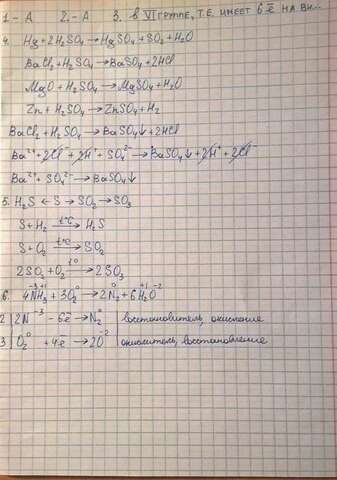 1.-А 2.-А 3. в VI группе, т.е. имеет 6ē на вн...
4. Hg+2H₂SO₄→HgSO₄+SO₂+H₂O
BaCl₂+H₂SO₄→BaSO₄+2HCl
MgO+H₂SO₄→MgSO₄+H₂O
Zn+H₂SO₄→ZnSO₄+H₂
BaCl₂+H₂SO₄→BaSO₄↓+2HCl
Ba²⁺+2Cl⁻+2H⁺+SO₄²⁻→BaSO₄↓+2H⁺+2Cl⁻
Ba²⁺+SO₄²⁻→BaSO₄↓
5. H₂S←S→SO₂→SO₃
S+H₂ —t°C→ H₂S
S+O₂ —t°C→ SO₂
2SO₂+O₂ —t°→ 2SO₃
6. 4N⁻³H₃⁺¹+3O₂⁰→2N₂⁰+6H₂⁺¹O⁻²
2 | 2N⁻³-6ē→N₂⁰ | восстановитель, окисление
3 | O₂⁰+4ē→2O⁻² | окислитель, восстановление